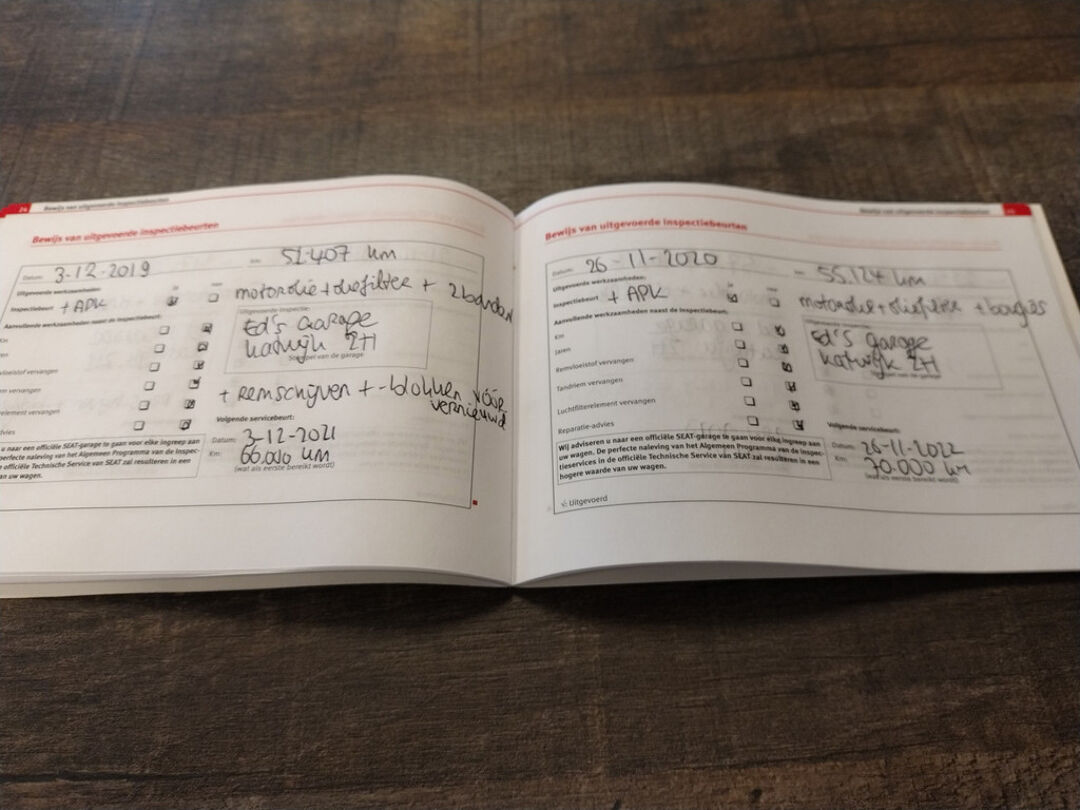 24 Bewijs van uitgevoerde inspectiebeurten
Bewijs van uitgevoerde inspectiebeurten
Datum: 3-12-2019 km: 51.407 km
Uitgevoerde werkzaamheden: ja nee
Inspectiebeurt + APK motorolie + oliefilter +
Aanvullende werkzaamheden naast de inspectiebeurt:
Uitgevoerde inspectie:
Ed's Garage
Katwijk ZH
Stempel van de garage
Km
ren
mvloeistof vervangen
em vervangen
relement vervangen
dvies
+ Remschijven + -blokken vóór
vernieuwd
Volgende servicebeurt:
Datum: 3-12-2021
Km: 66.000 km
(wat als eerste bereikt wordt)
u naar een officiële SEAT-garage te gaan voor elke ingreep aan
perfecte naleving van het Algemeen Programma van de Inspec-
officiële Technische Service van SEAT zal resulteren in een
an uw wagen.
Bewijs van uitgevoerde inspectiebeurten
Bewijs van uitgevoerde inspectiebeurten
Datum: 26-11-2020 km: 55.124 km
Uitgevoerde werkzaamheden: ja nee
Inspectiebeurt + APK motorolie + oliefilter + bougies
Aanvullende werkzaamheden naast de inspectiebeurt:
Ed's garage
Katwijk ZH
Stempel van de garage
Km
Jaren
Remvloeistof vervangen
Tandriem vervangen
Luchtfilterelement vervangen
Reparatie-advies
Volgende servicebeurt:
Datum: 26-11-2022
Km: 70.000 km
(wat als eerste bereikt wordt)
Wij adviseren u naar een officiële SEAT-garage te gaan voor elke ingreep aan
uw wagen. De perfecte naleving van het Algemeen Programma van de Inspec-
tieservices in de officiële Technische Service van SEAT zal resulteren in een
hogere waarde van uw wagen.
Uitgevoerd